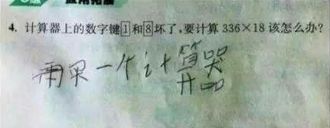 应用拓展
4. 计算器上的数字键1和8坏了,要计算 336×18 该怎么办?
再买一个计算器